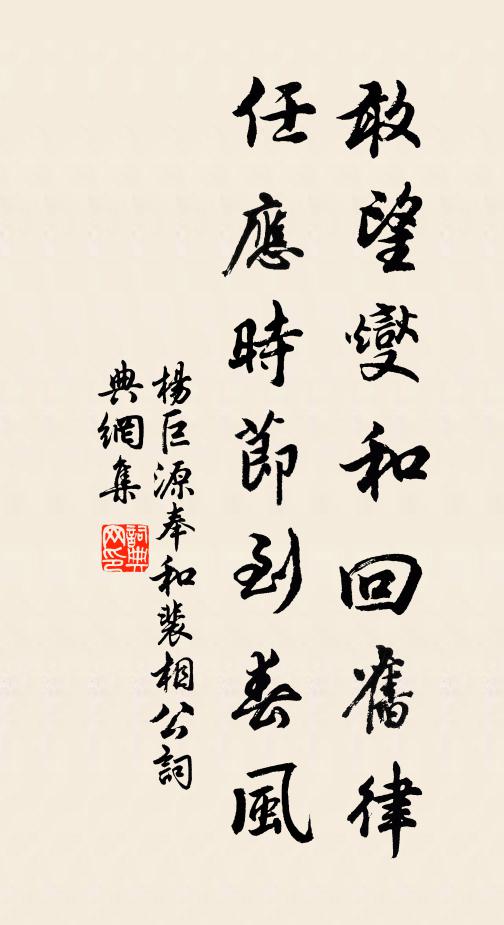 敢望燮和回舊律
任應時節到春風
楊巨源奉和裴相公詞
典網集
詞典
网印